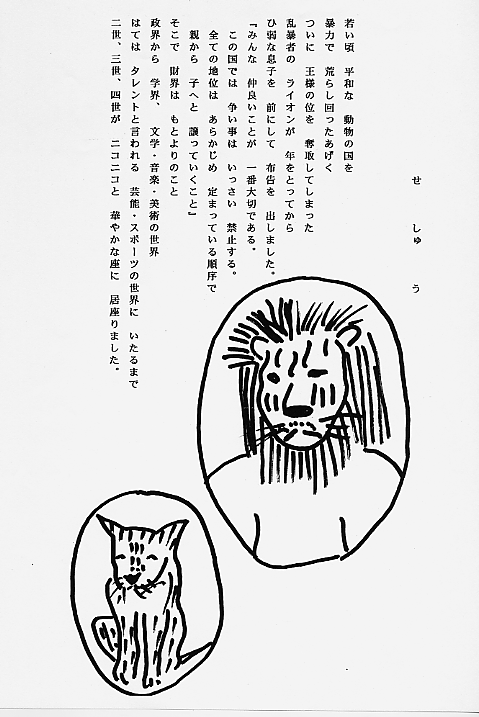 せしゅう
若い頃 平和な 動物の国を
暴力で 荒らし回ったあげく
ついに 王様の位を 奪取してしまった
乱暴者の ライオンが 年をとってから
ひ弱な息子を 前にして 布告を 出しました。
『みんな 仲良いことが 一番大切である。
この国では 争い事は いっさい 禁止する。
全ての地位は あらかじめ 定まっている順序で
親から 子へと 譲っていくこと』
そこで 財界は もとよりのこと
政界から 学界、 文学・音楽・美術の世界
はては タレントと言われる 芸能・スポーツの世界に いたるまで
二世、三世、四世が ニコニコと 華やかな座に 居座りました。